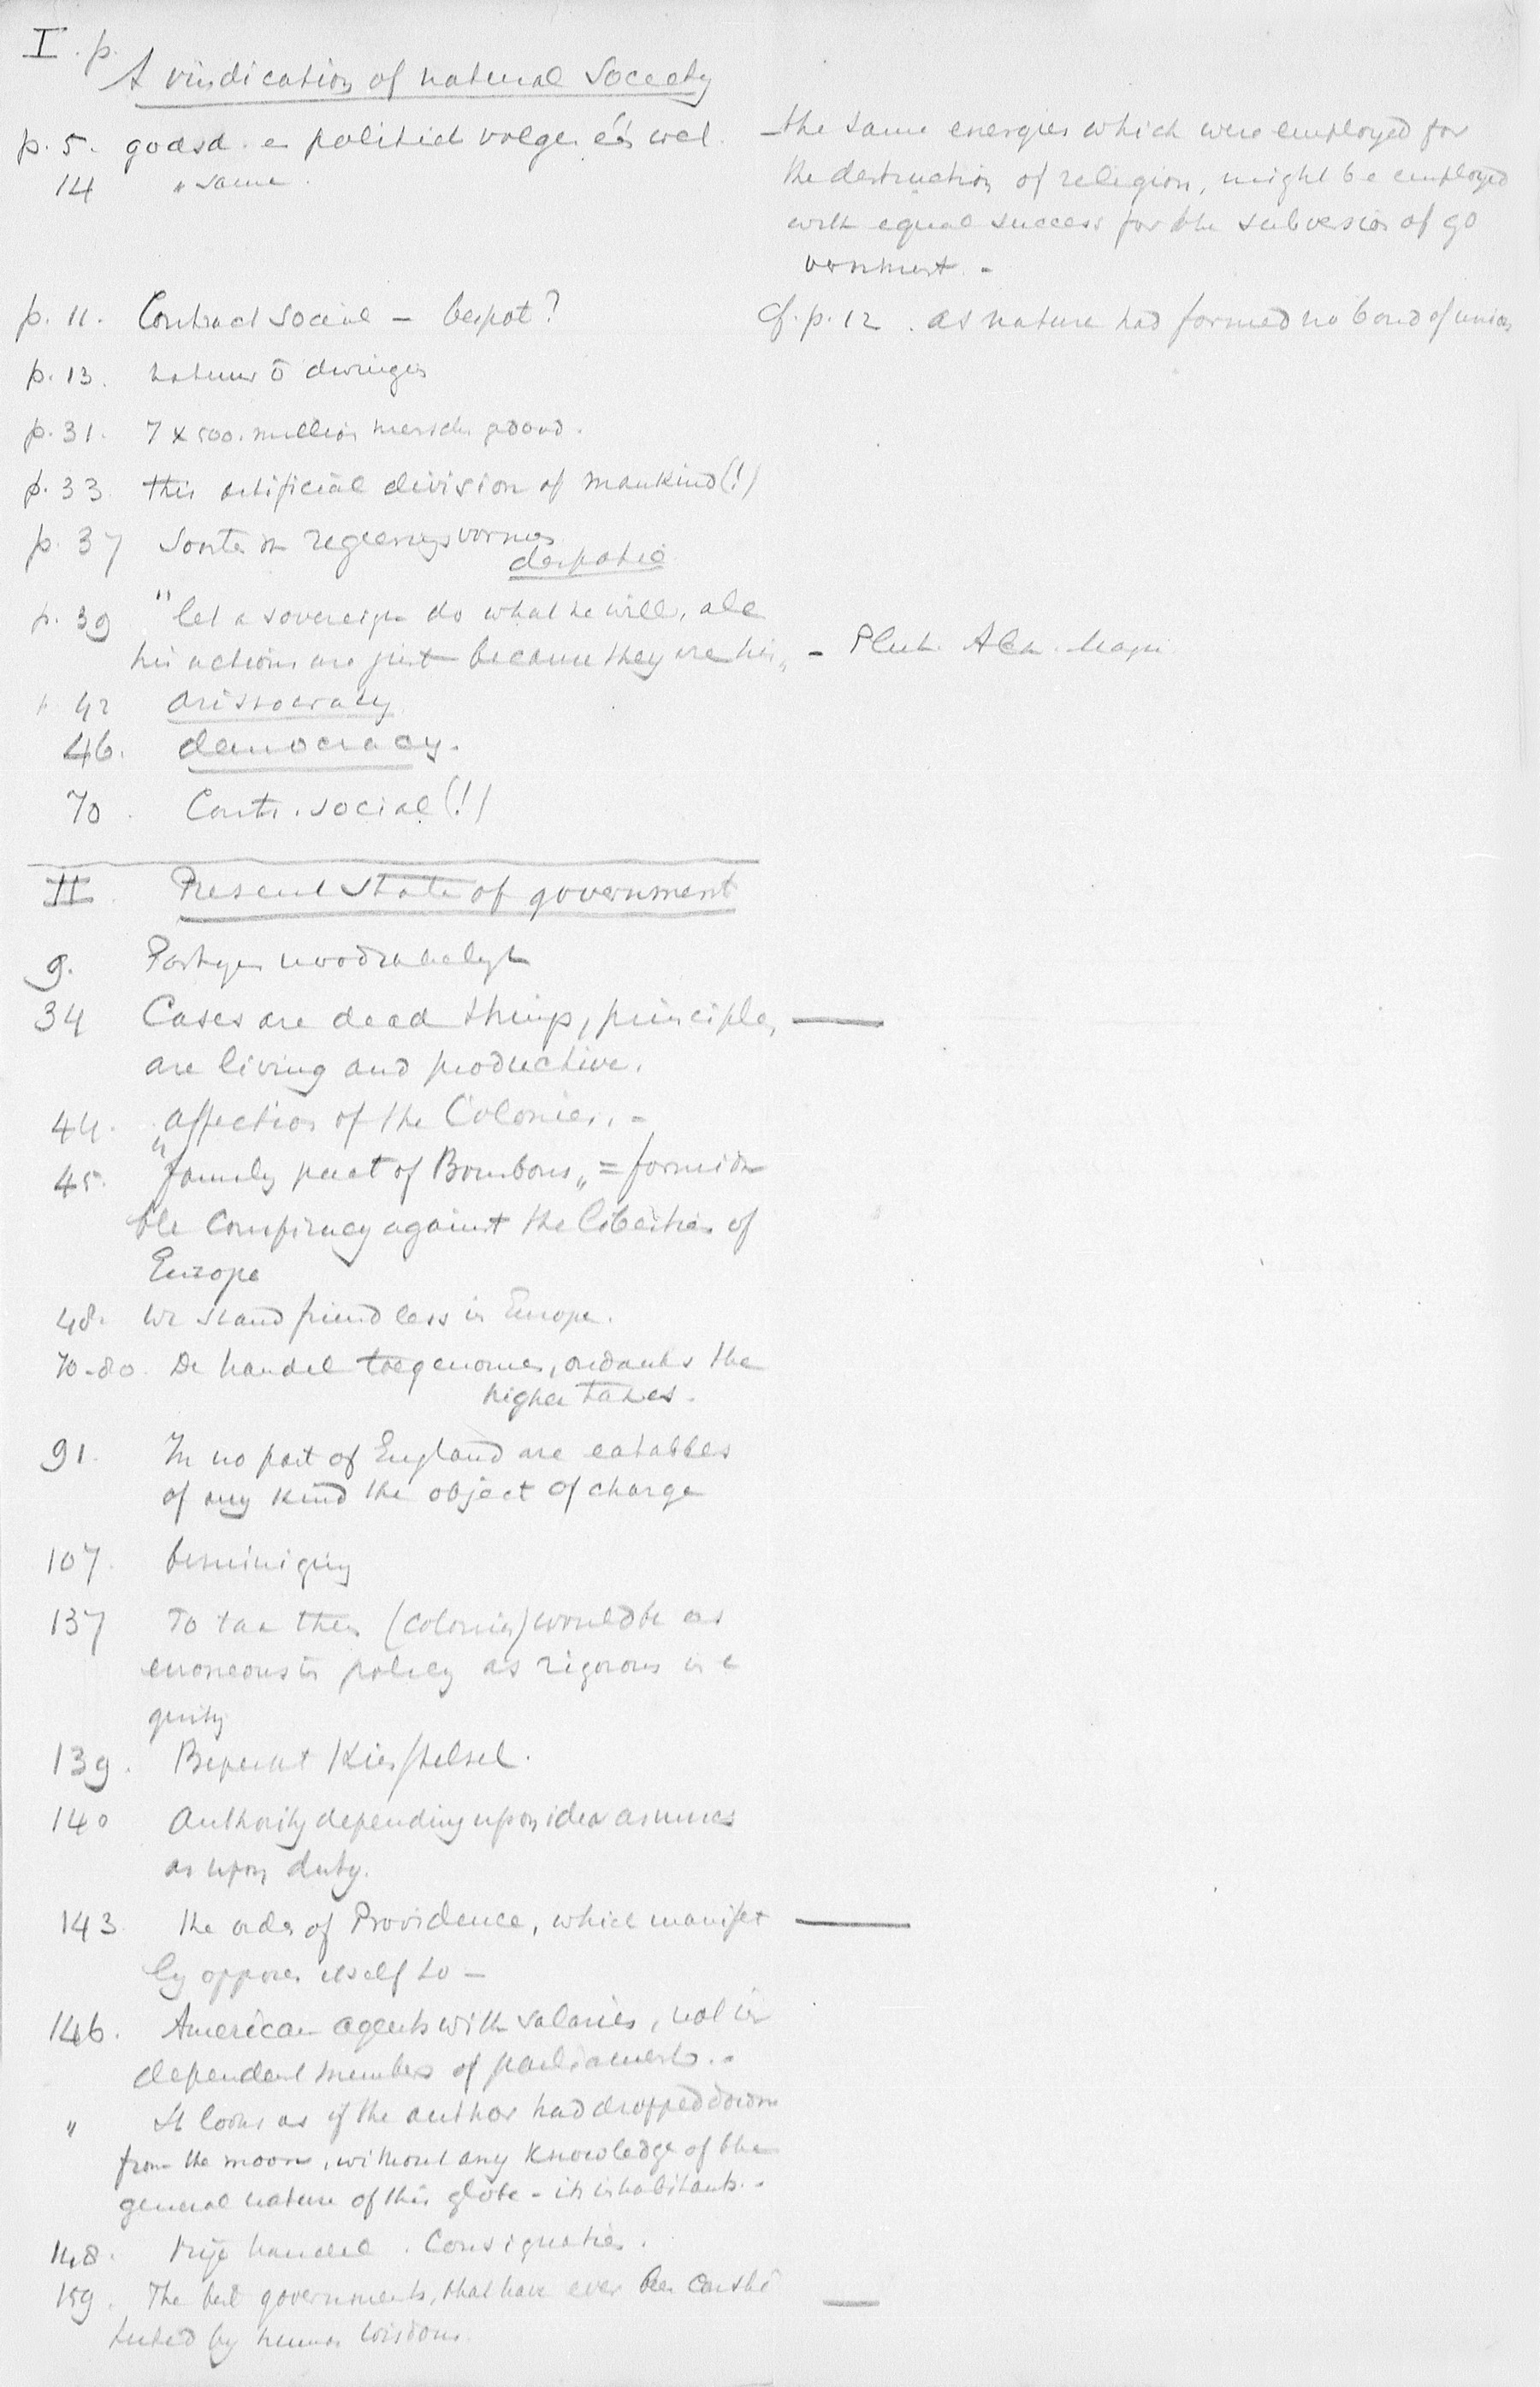 I. p.
A vindication of natural Society
p. 5. godsd. e politiek volgen één wet.
the same energies which were employed for
14 " same.
the destruction of religion, might be employed
with equal success for the subversion of go
vernment. -
p. 11. Contract Social - bespot?
cf. p. 12. as nature had formed no bond of union
p. 13. natuur ō dwingen
p. 31. 7 x 500. million mensch. gedood.
p. 33 this artificial division of mankind (!)
p. 37 Soorten regeeringsvormen
despotie
p. 39 "let a sovereign do what he will, all
his actions are just because they are his„ - Plut. Alex. Magn.
p 42 aristocracy
46. democracy.
70. Contr. social (!)
II. Present State of government
9. Partyen noodzakelijk
34 Cases are dead things, principles
are living and productive.
44. affection of the Colonies. -
45. "family pact of Bourbons„ = formida
ble Conspiracy against the liberties of
Europe
48. We stand friendless in Europe.
70-80. De handel toegenomen, ondanks the
higher taxes.
91. In no part of England are eatables
of any kind the object of charge
107. bezuiniging
137 To tax them (colonies) would be as
erroneous in policy as rigorous in e
quity
139. Beperkt Kiesstelsel.
140 Authority depending upon idea as much
as upon duty.
143 the order of Providence, which manifest
ly opposes itself to -
146. American agents with salaries, not in
dependent members of parliaments. -
" It looks as if the author had dropped down
from the moon, without any knowledge of the
general nature of this globe - its inhabitants. -
148. Vrije handel. Consignatie.
159. The best governments, that have ever been consti
tuted by human wisdom.